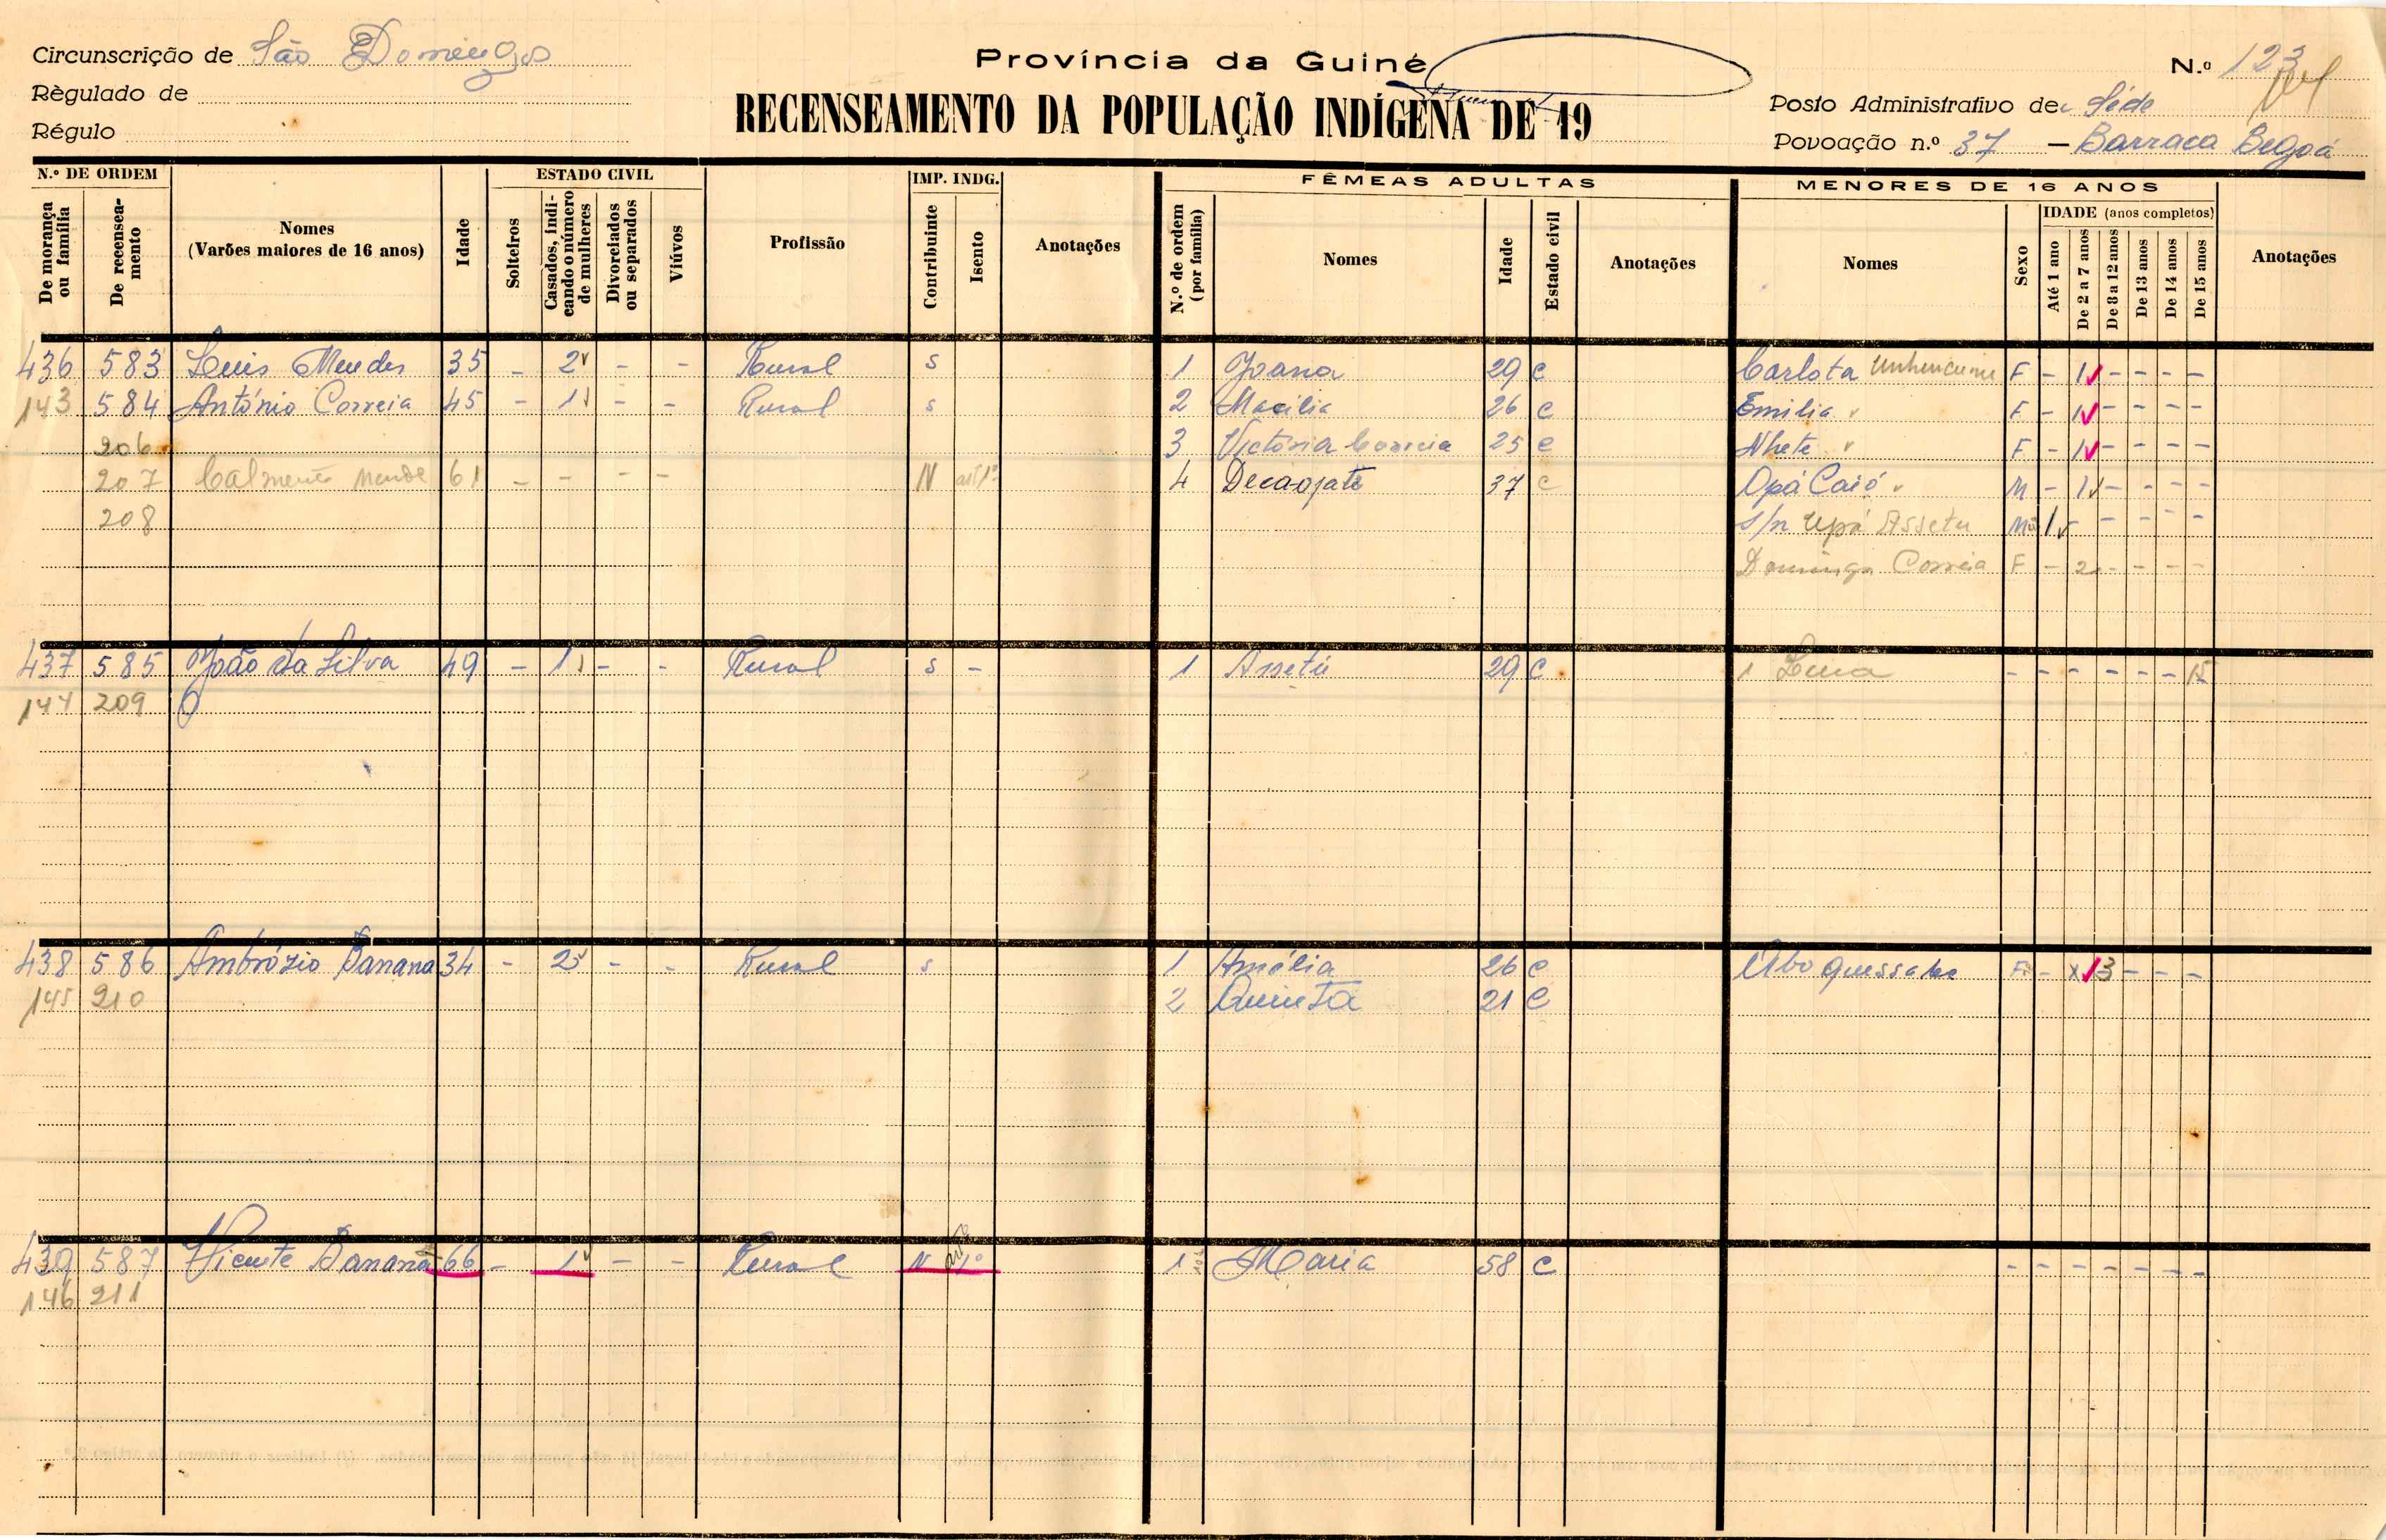 Circunscrição de São Domingos
Província da Guiné
N.º 123
Règulado de
RECENSEAMENTO DA POPULAÇÃO INDÍGENA DE 19
Posto Administrativo de Séde
Régulo
Povoação n.º 37 — Barraca Begoá
N.º DE ORDEM
De morança ou família
De recenseamento
Nomes
(Varões maiores de 16 anos)
Idade
ESTADO CIVIL
Solteiros
Casados, indicando o número de mulheres
Divorciados ou separados
Viúvos
Profissão
IMP. INDG.
Contribuinte
Isento
Anotações
FÊMEAS ADULTAS
N.º de ordem (por família)
Nomes
Idade
Estado civil
Anotações
MENORES DE 16 ANOS
Nomes
Sexo
IDADE (anos completos)
Até 1 ano
De 2 a 7 anos
De 8 a 12 anos
De 13 anos
De 14 anos
De 15 anos
Anotações
436 583 Luis Mendes 35 - 2 - - Rural s 1 Joana 29 c Carlota F - 1 - - - -
143 584 António Correia 45 - 1 - - Rural s 2 Macilia 26 c Emilia F - 1 - - - -
206 3 Victória Correia 25 c Nhete F - 1 - - - -
207 61 - - - - N 4 37 c Opá Caió M - 1 - - - -
208 s/n Upá Assetu M 1 - - - - -
Dominga Correia F - 2 - - - -
437 585 João da Silva 49 - 1 - - Rural s - 1 Assetú 29 C 1 - - - - - - 15
144 209
438 586 Ambrózio Banana 34 - 2 - - Rural s 1 Amélia 26 c F - 1 3 - - -
145 210 2 Quinta 21 C
439 587 Vicente Banana 66 - 1 - - Rural N 1º 1 Maria 58 C - - - - - - -
146 211